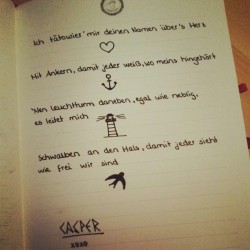 Ich tätowier' mir deinen Namen über's Herz
Mit Ankern, damit jeder weiß, wo meins hingehört
'Nen Leuchtturm daneben, egal wie neblig,
es leitet mich
Schwalben an den Hals, damit jeder sieht
wie frei wir sind
CASPER
XOXO